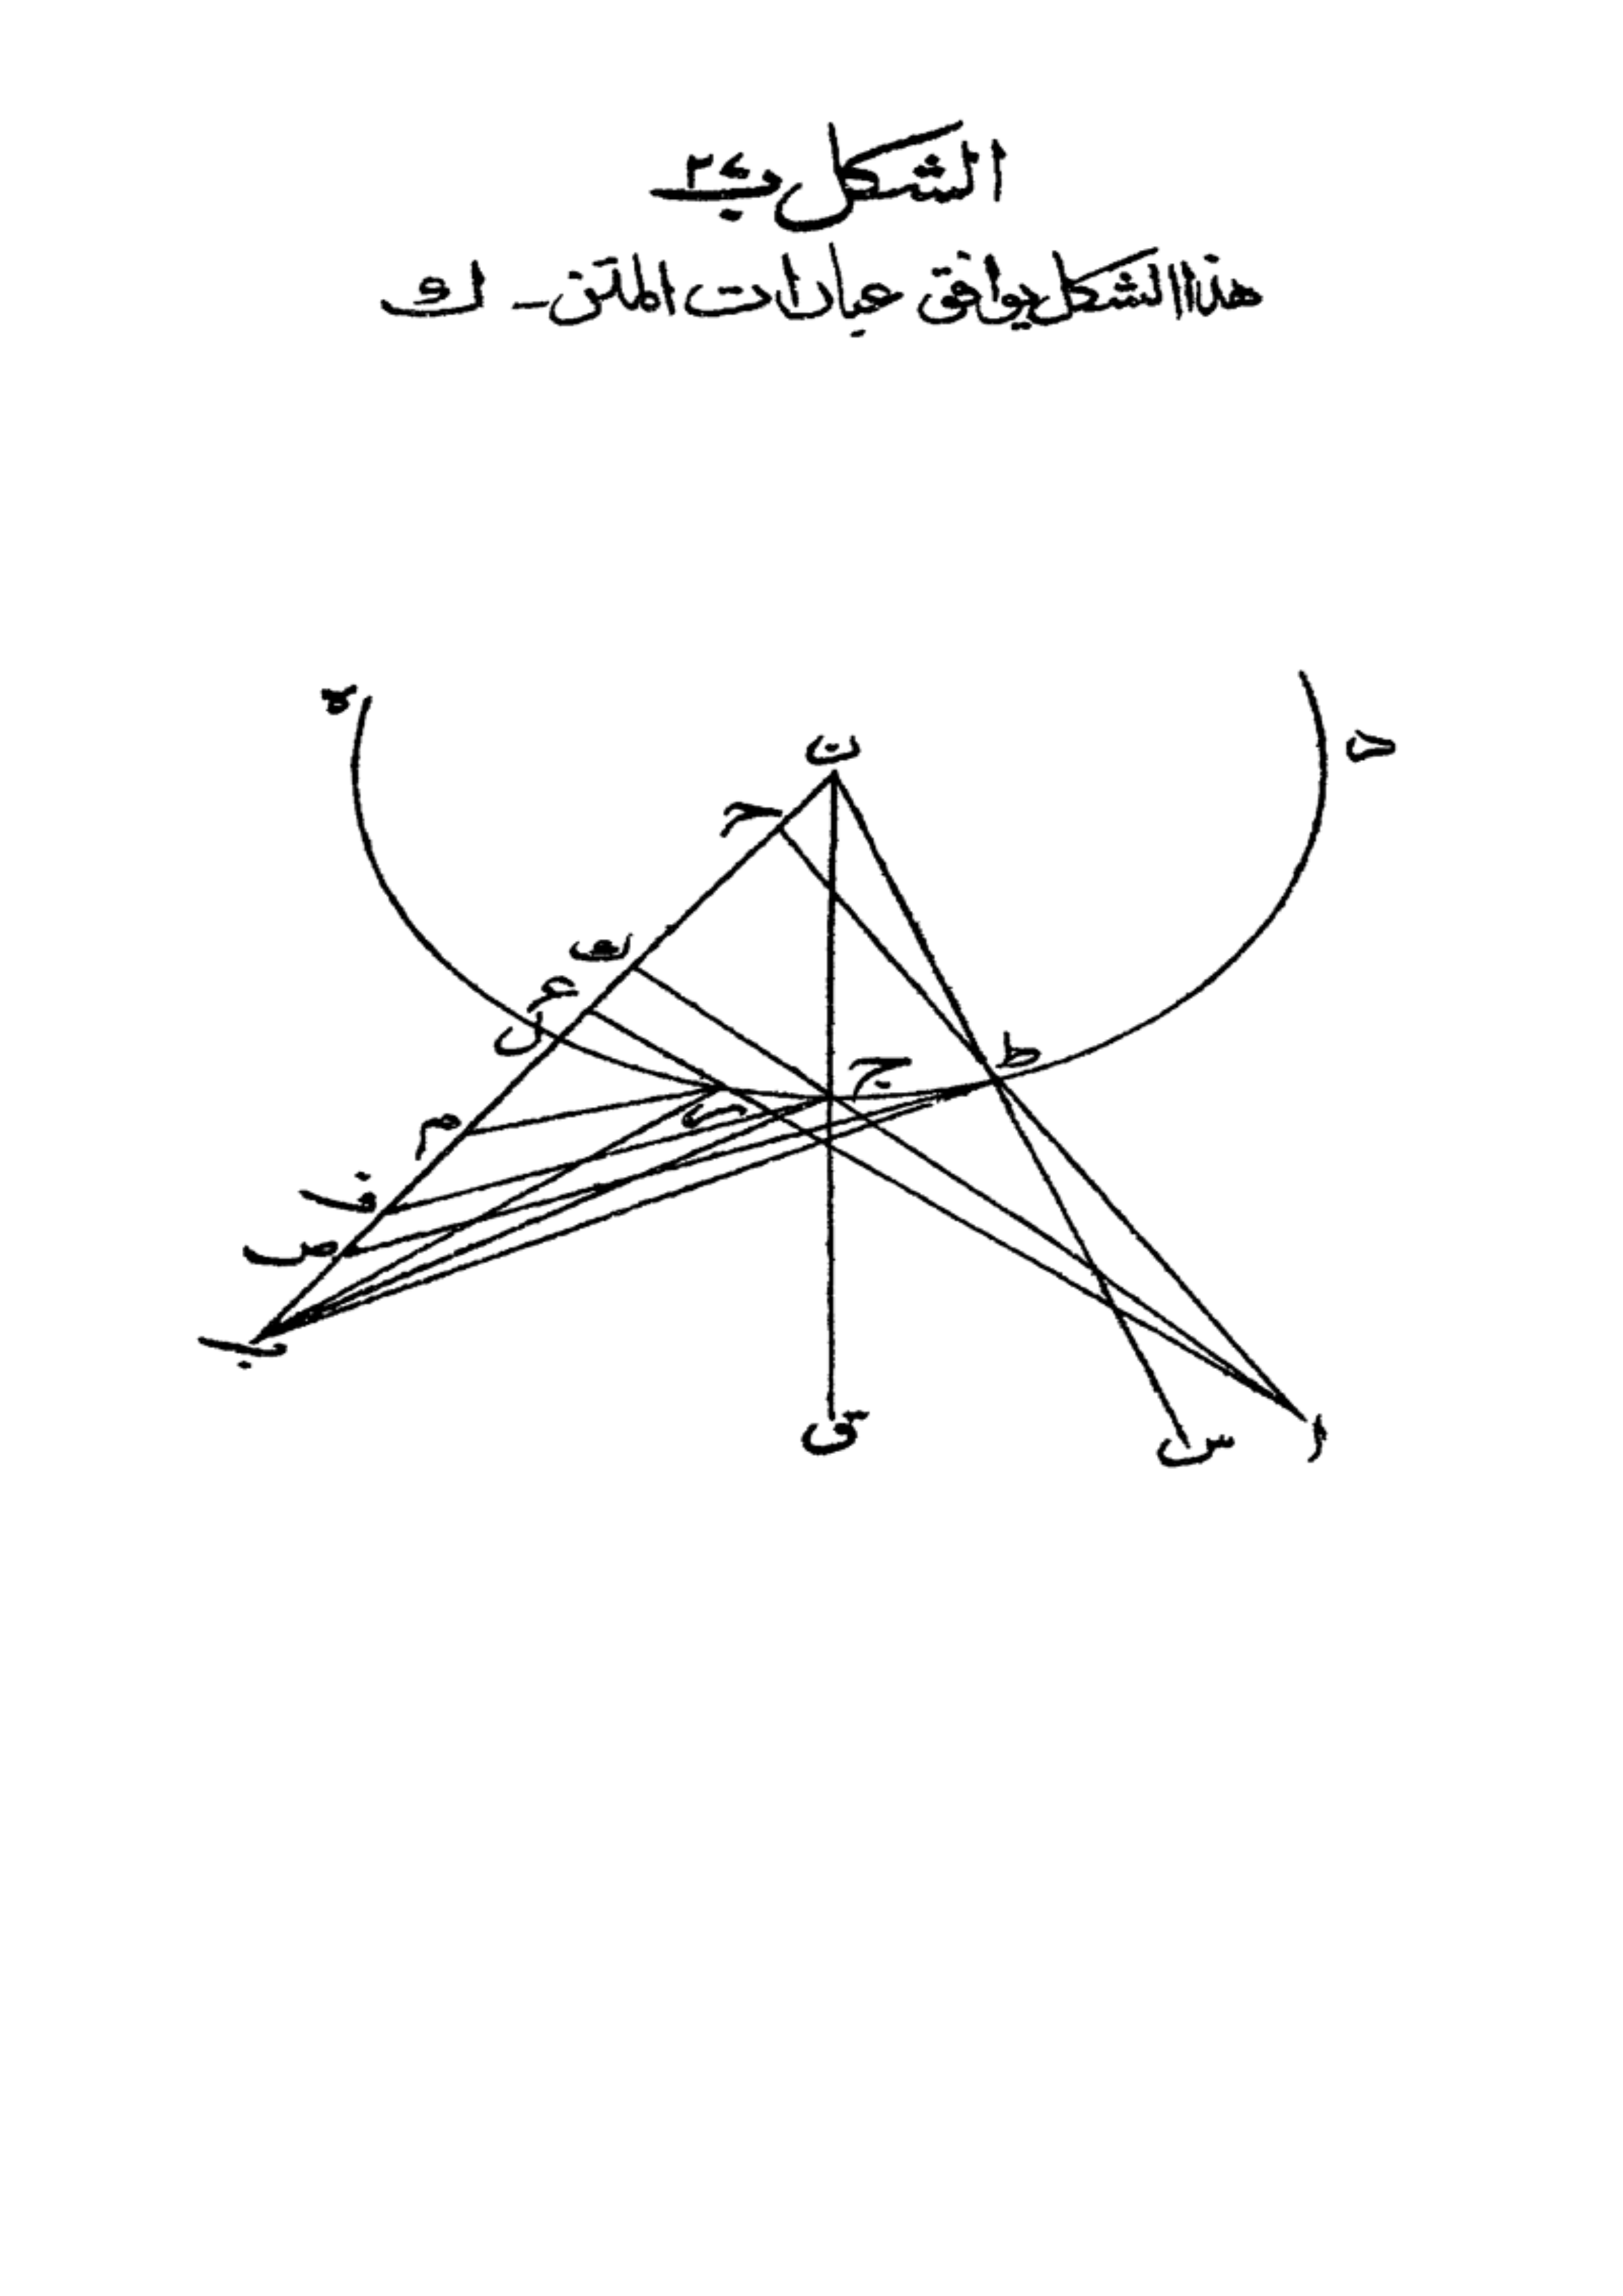 الشكل
هذا الشكل يوافق عبارات المتن - ك
ه
ن
د
ح
ك
ع
ل
ط
ج
م
ف
ص
ب
ق
س
ا